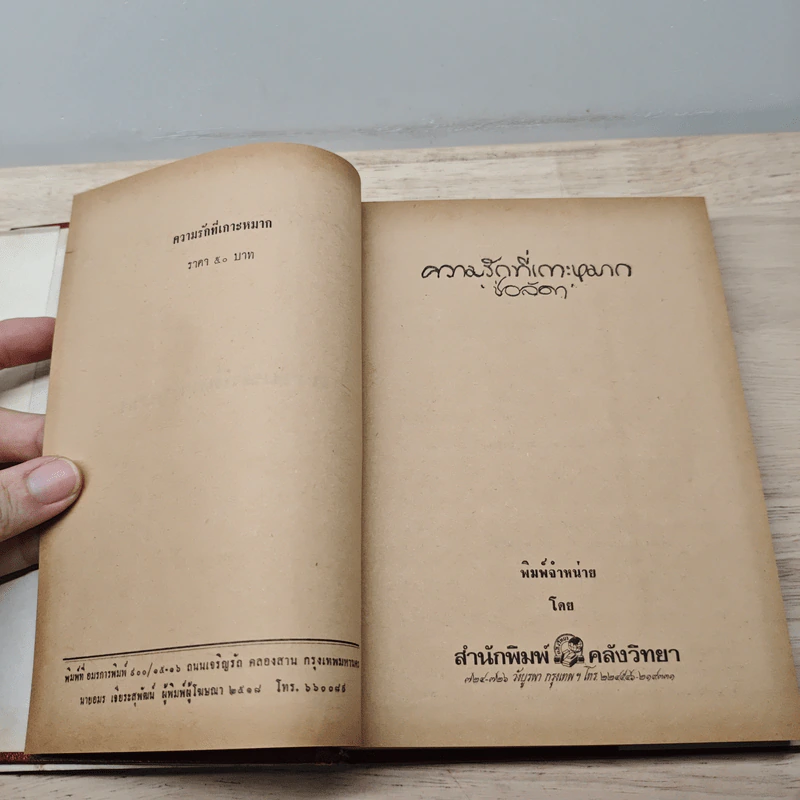 ความรักที่เกาะหมาก
ราคา ๕๐ บาท
พิมพ์ที่ อมรการพิมพ์ ๘๐๐/๑๕-๑๖ ถนนเจริญรัถ คลองสาน กรุงเทพมหานคร
นายอมร เจียระสุพัฒน์ ผู้พิมพ์ผู้โฆษณา ๒๕๑๘ โทร. ๖๖๐๐๘๙
ความรักที่เกาะหมาก
'ช่อลัดา'
พิมพ์จำหน่าย
โดย
สำนักพิมพ์ คลังวิทยา
๗๒๔-๗๒๖ วังบูรพา กรุงเทพ ฯ โทร